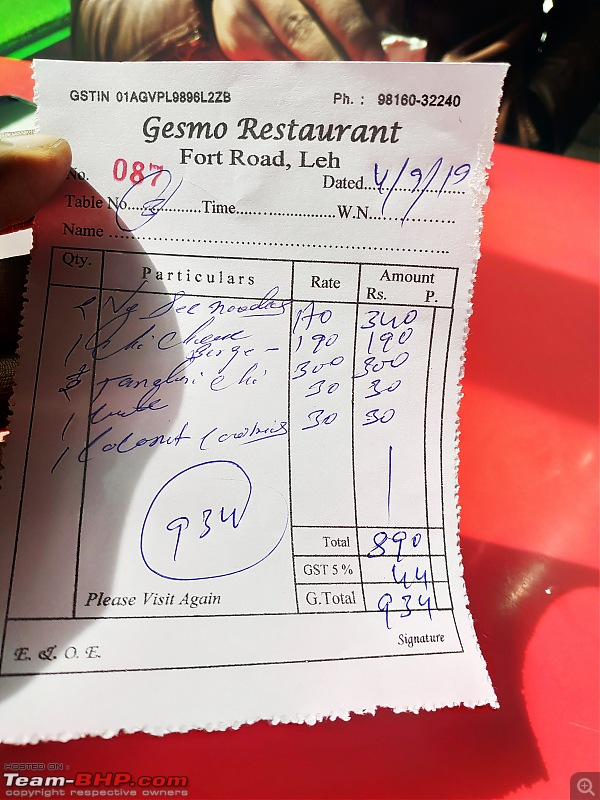 GSTIN 01AGVPL9896L2ZB Ph. : 98160-32240
Gesmo Restaurant
Fort Road, Leh
No. 087 Dated....4/9/19
Table No....3....Time............W.N............
Name ............
Qty. Particulars Rate Amount
Rs. P.
2 Veg noodles 170 340
1 Chi Cheese 190 190
300 300
1 30 30
1 Coconut Cookies 30 30
934
Total 890
GST 5 % 44
Please Visit Again G.Total 934
Signature
E. & O. E.
HOSTED ON :
Team-BHP.com
copyright respective owners